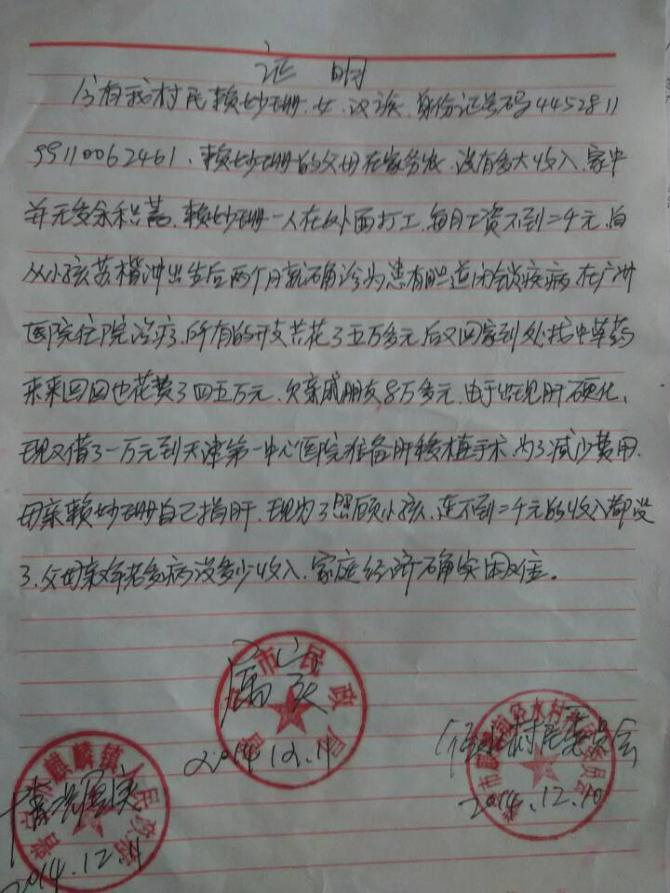 证明
兹有我村民赖妙珊,女,汉族,身份证号码4452811
99110062461、赖妙珊的父母在家务农,没有多大收入,家中
并无多余积蓄,赖妙珊一人在外面打工,每月工资不到二千元,自
从小孩苏楷冲出生后两个月就确诊为患有胆道闭锁疾病,在广州
医院住院治疗,所有的开支共花了五万多元,后又回家到处找中草药
来来回回也花费了四五万元,欠亲戚朋友8万多元,由于出现肝硬化,
现又借了一万元到天津第一中心医院准备肝移植手术,为了减少费用,
母亲赖妙珊自己捐肝,现为了照顾小孩,连不到二千元的收入都没
了,父母亲年老多病没多少收入,家庭经济确实困难。
市民政局
属实
2014.12.11
村民委员会
2014.12.10
麒麟镇人民政府
情况属实
2014.12.11